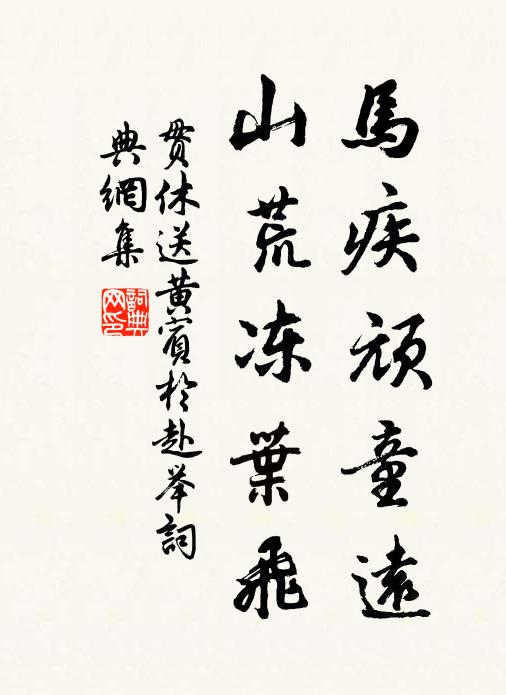 馬疾頑童遠
山荒冻葉飛
貫休送黄賓於赴举詞
典網集
詞典網印